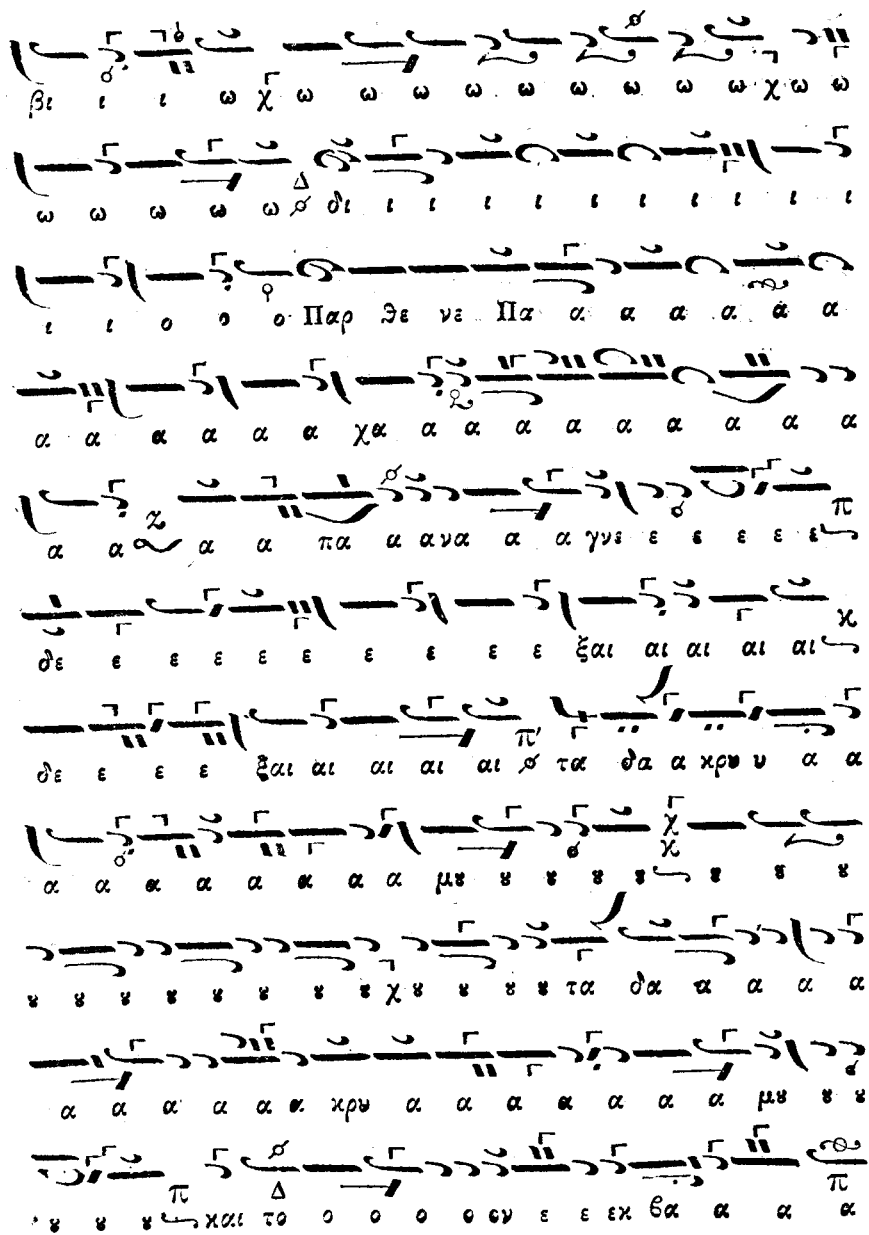 βι ι ι ω χ ω ω ω ω ω ω ω ω ω χ ω ω
ω ω ω ω ω Δ δι ι ι ι ι ι ι ι ι ι
ι ι ο ο ο Παρ θε νε Πα α α α α α α
α α α α α α χα α α α α α α α α α
α α α α πα α α να α α γνε ε ε ε ε ε π
δε ε ε ε ε ε ε ε ε ε ξαι αι αι αι αι κ
δε ε ε ε ξαι αι αι αι αι π' τα δα α κρυ υ α α
α α α α α α α α μȣ ȣ ȣ ȣ ȣ χ κ ȣ ȣ ȣ
ȣ ȣ ȣ ȣ ȣ ȣ ȣ ȣ χ ȣ ȣ ȣ ȣ τα δα α α α α
α α α α α α κρυ α α α α α α α μȣ ȣ ȣ
ȣ ȣ ȣ π και το Δ ο ο ο ο ον ε ε εκ βα α α α π